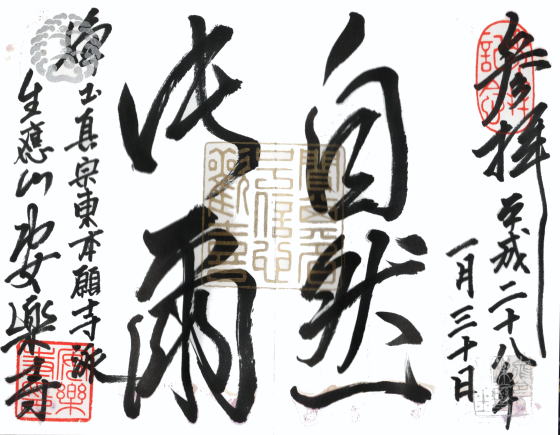 参拝
平成二十八年
一月三十日
自然
法爾
浄土真宗東本願寺派
生應山安樂寺